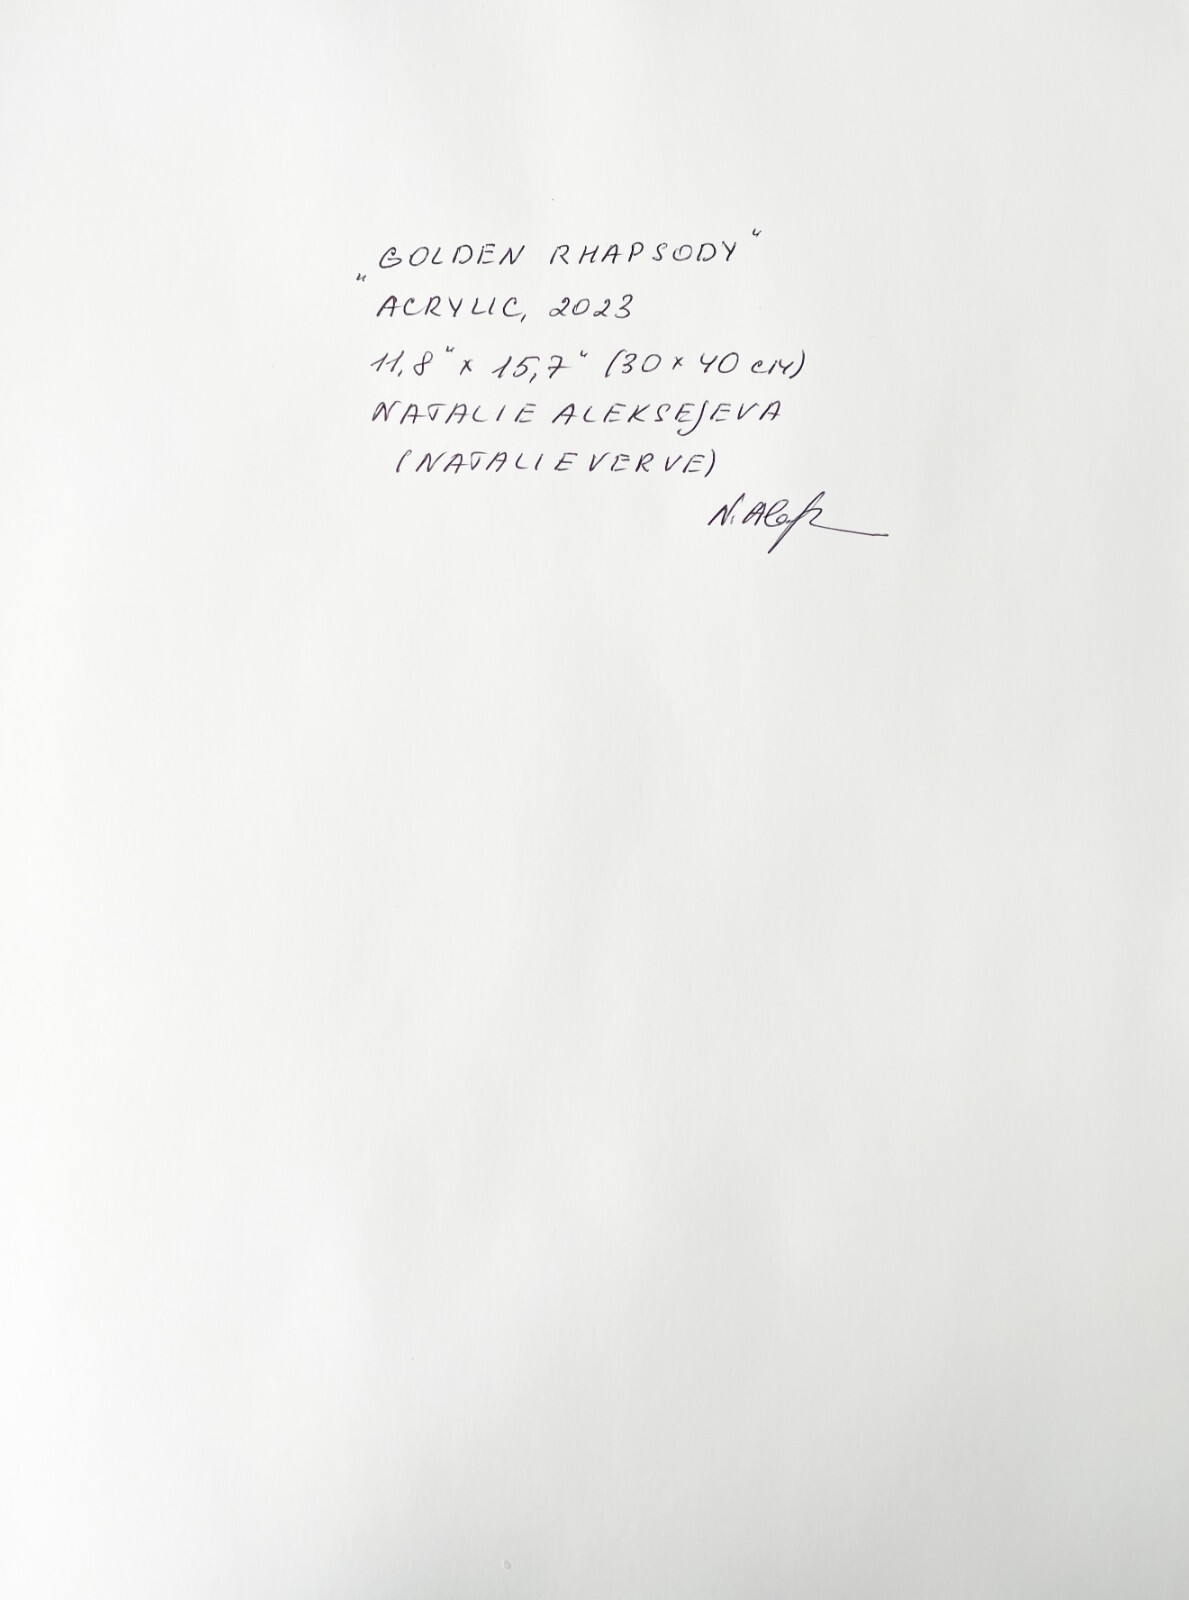 „GOLDEN RHAPSODY“
ACRYLIC, 2023
11,8“ x 15,7“ (30 x 40 cm)
NATALIE ALEKSEJEVA
(NATALIE VERVE)
N. Alek